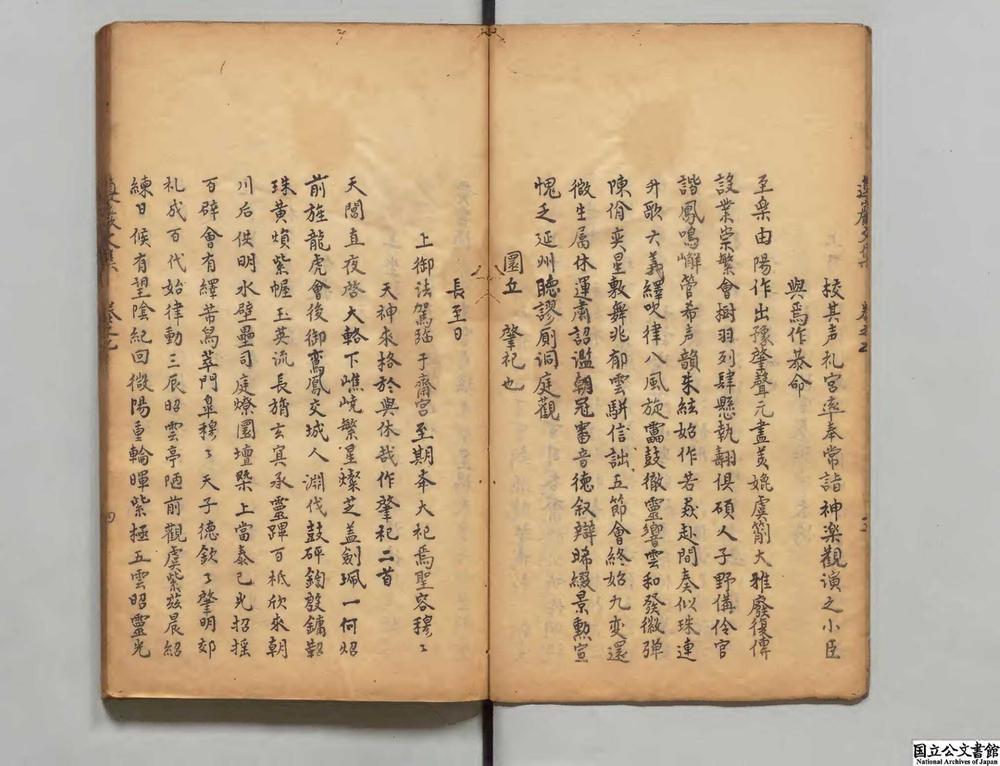 校其声礼宮遂奉常詣神楽觀演之小臣
與焉作恭命
至楽由陽作出豫肇聲元盡美媲虞箾大雅廢復傳
設業崇繁會樹羽列肆懸執翿俱碩人子野偹伶官
諧鳳鳴嶰管希声韻朱絃始作若赴間奏似珠連
升歌六義繹吹律八風旋靁鼓徹靈響雲和發微弹
陳佾奕星敷舞兆郁雲駢信詘五節會終始九变還
微生属休運肅詔濫朝冠審音德叙辯晞綴景勲宣
愧乏延州聴謬廁洞庭觀
圜丘 肇祀也
長至日
上御法駕臨于齋宮至期奉大祀焉聖容穆〻
天神來格於與休哉作肇祀二首
天閶直夜啓大輅下嶕嶢繁星燦芝盖劍珮一何炤
前旌龍虎會後御鸞鳳交城人淵伐鼓砰鍧殷鏞
珠黄煩紫幄玉英流長旓玄冥承靈蹕百祗欣來朝
川后供明水壁壘司庭燎圜壇槩上當泰乙光招搖
百辟會有繹芾舄萃門皐穆〻天子德欽〻肇明郊
礼成百代始律動三辰昭雲亭陋前觀虞柴兹晨紹
練日候有望陰紀回微陽重輪暉紫極五雲昭靈光
國立公文書館
National Archives of Japan